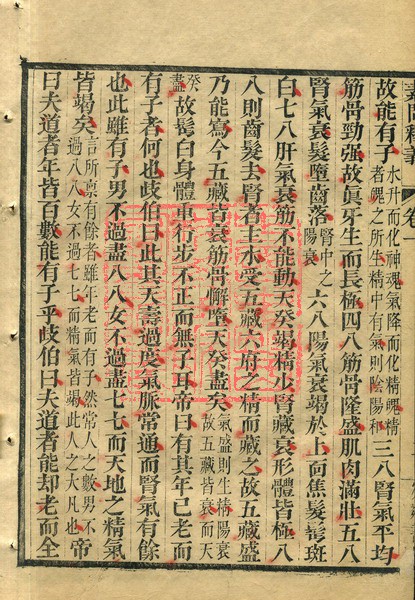 故能有子水升而化神魂氣降而化精魄精者魄之所生精中有氣則陰陽和三八腎氣平均
筋骨勁强故眞牙生而長極四八筋骨隆盛肌肉滿壯五八
腎氣衰髮墮齒落腎中之陽衰六八陽氣衰竭於上面焦髮鬓斑
白七八肝氣衰筋不能動天癸竭精少腎藏衰形體皆極八
八則齒髮去腎者主水受五藏六府之精而藏之故五藏盛
乃能寫今五藏皆衰筋骨懈墮天癸盡矣氣盛則生精陽衰故五藏皆衰而天
癸盡故髮白身體重行步不正而無子耳帝曰有其年已老而
有子者何也歧伯曰此其天壽過度氣脈常通而腎氣有餘
也此雖有子男不過盡八八女不過盡七七而天地之精氣
皆竭矣言所禀有餘者雖年老而有子然常人之數男不過八八女不過七七而精氣皆竭此人之大凡也帝
曰夫道者年皆百數能有子乎歧伯曰夫道者能却老而全